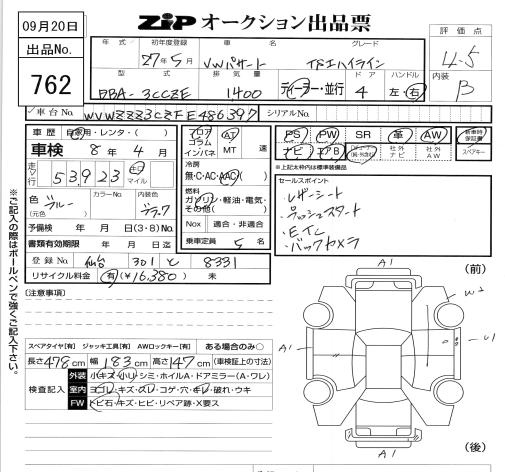 09月20日
ZIP オークション出品票
出品No.
762
評価点
4.5
内装
B
年式 初年度登録 車名 グレード
27年5月 VWパサート TSIハイライン
型式 排気量 ドア ハンドル
DBA-3CCZE 1400 ディーラー・並行 4 左・右
車台No. WVWZZZ3CZFE486397 シリアルNo.
車歴 自家用・レンタ・( )
車検 8年4月
走行 53,923 km マイル
色 ブルー カラーNo. 内装色 ブラック
(元色)
予備検 年 月 日(3・8)No.
書類有効期限 年 月 日迄
登録No. 仙台 301 と 8331
リサイクル料金 有(¥16,380) 未
フロア コラム インパネ AT MT 速
冷房
無・C・AC・AAC( )
燃料
ガソリン・軽油・電気・その他( )
Nox 適合・非適合
乗車定員 5 名
PS PW SR 革 AW 新車時保証書
ナビ エアB 社外ナビ 社外AW スペアキー
※上記太枠内は標準装備品
セールスポイント
・レザーシート
・プッシュスタート
・ETC
・バックカメラ
※ご記入の際はボールペンで強くご記入下さい。
[注意事項]
スペアタイヤ[有] ジャッキ工具[有] AWロックキー[有] ある場合のみ○
長さ478cm 幅183cm 高さ147cm (車検証上の寸法)
検査記入
外装 小キズ・小凹・シミ・ホイルA・ドアミラー(A・ワレ)
室内 ヨゴレ・キズ・スレ・コゲ・穴・キレ・破れ・ウキ
FW トビ石・キズ・ヒビ・リペア跡・X要ス
(前)
A1
W2
A1
U1
A1
(後)